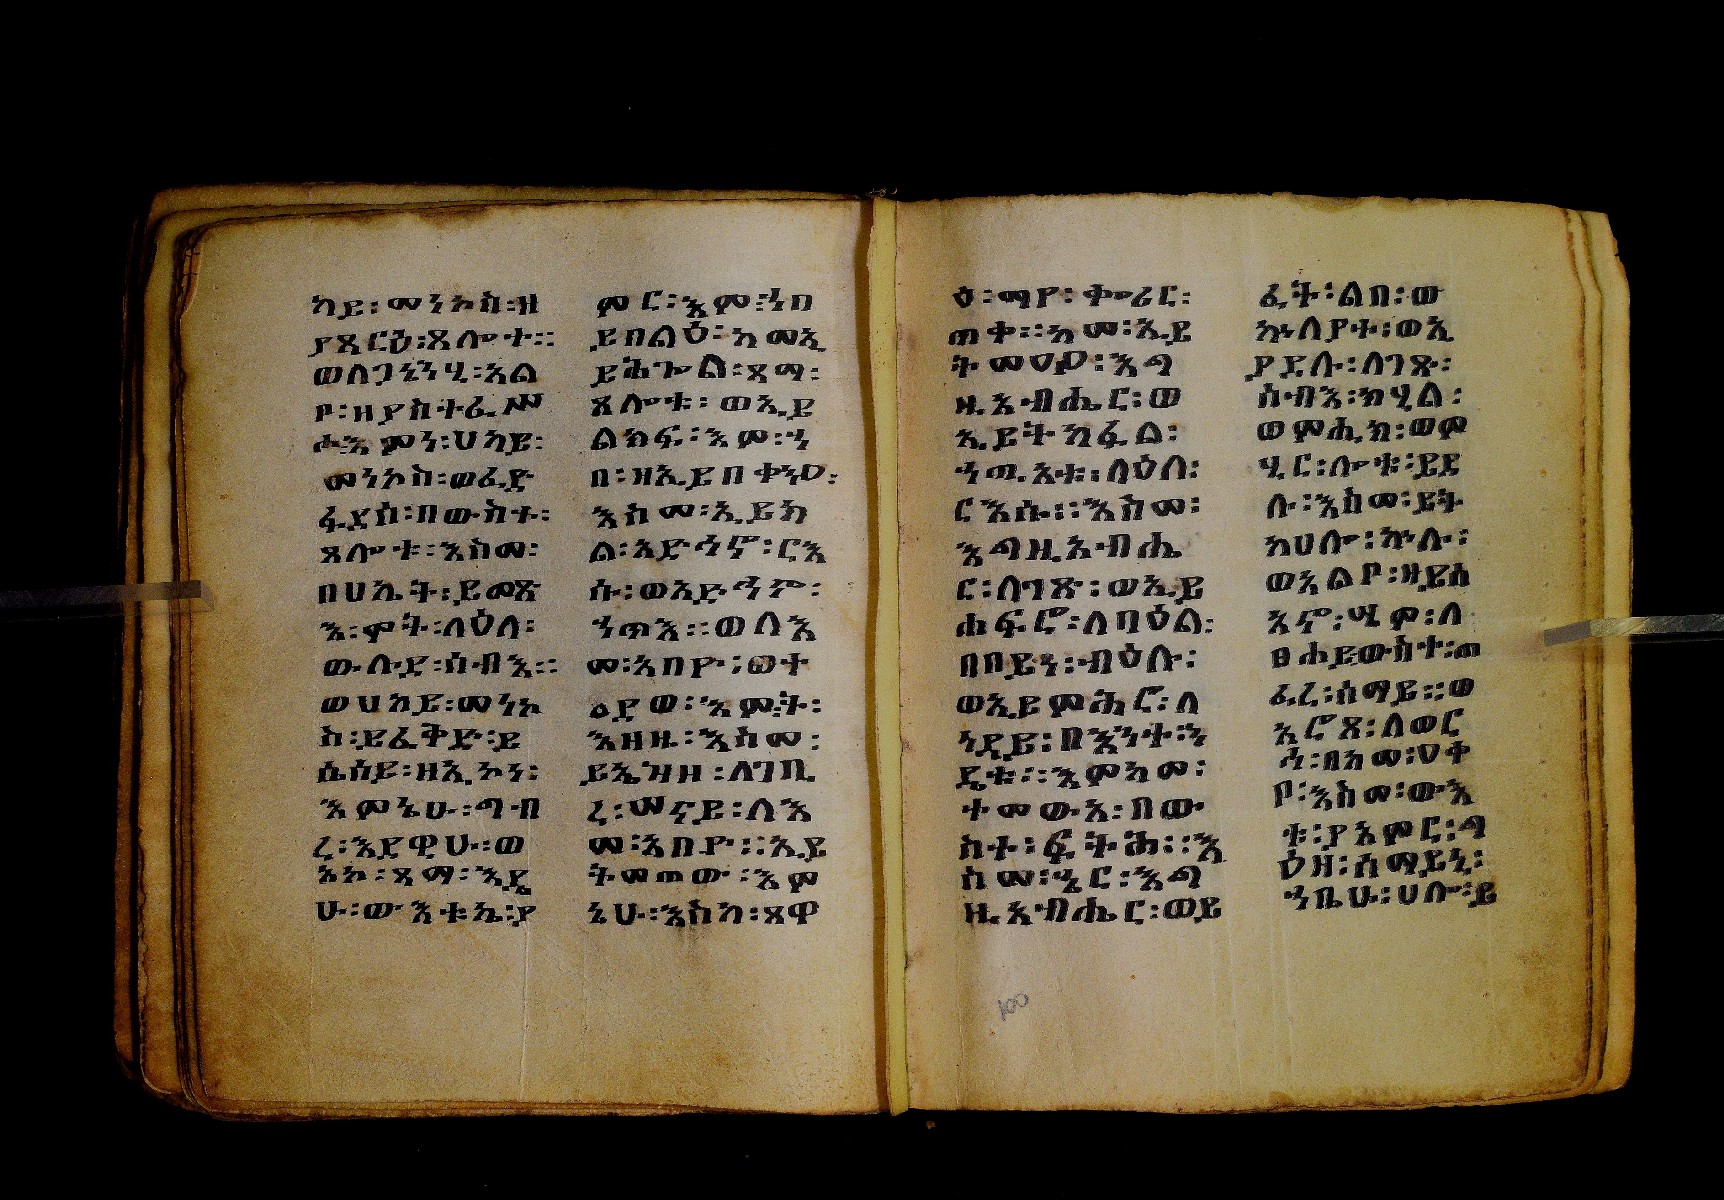 ካይ፡መነኮስ፡ዘ
ያጸርዕ፡ጸሎተ፡፡
ወለጋኔንሂ፡አል
ቦ፡ዘያስተፌሥ
ሖ፡እምነ፡ሀካይ፡
መነኮስ፡ወፈድ
ፋደሰ፡በውስተ፡
ጸሎቱ፡እስመ፡
በሀኬት፡ይመጽ
እ፡ሞት፡ለዕለ፡
ውሉደ፡ሰብእ፡፡
ወሀካይ፡መነኮ
ስ፡ይፈቅድ፡ይ
ሴሰይ፡ዘኢኮነ፡
እምኔሁ፡ግብ
ረ፡እደዊሁ፡ወ
እኮ፡ጻማ፡እደ
ሁ፡ውእቱኬ፡ያ
ምር፡እም፡ኀበ
ይበልዕ፡ካመኢ
ይሕጐል፡ጻማ፡
ጸሎቱ፡ወኢይ
ልክፍ፡እም፡ኀ
በ፡ዘኢይበቀነዐ፡
እስመ፡ኢይክ
ል፡አድኅኖ፡ርእ
ሱ፡ወአድኅኖ፡
ኀጥእ፡፡ወለእ
መ፡አበዮ፡ፀተ
ዐደወ፡እሞት፡
እዘዙ፡እስመ፡
ይኤዝዘ፡ለገቢ
ረ፡ሠናይ፡ለእ
መ፡አበዮ፡፡ኢይ
ትመጠው፡እም
ኔሁ፡እስከ፡ጸዋ
ዕ፡ማየ፡ቀሪር፡
ጠቀ፡፡አመ፡ኢይ
ትመዐዕ፡እግ
ዚአብሔር፡ወ
ኢይትከፈል፡
ኀጢአቱ፡ለዕለ፡
ርእሱ፡፡እስመ፡
እግዚአብሔ
ር፡ለገጽ፡ወኢይ
ሐፍሮ፡ለባዕል፡
በበይነ፡ብዕሉ፡
ወኢይምሕሮ፡ለ
ነዳይ፡በእንተ፡ን
ዴቱ፡፡እምካመ፡
ተመውአ፡በው
ስተ፡ፍትሕ፡፡እ
ስመ፡ኄር፡እግ
ዚአብሔር፡ወይ
ፈት፡ልበ፡ወ
ኵለያተ፡ወኢ
ያደሉ፡ለገጽ፡
ሰብእ፡ከሂል፡
ወምሒክ፡ወም
ሂር፡ሎቱ፡ይደ
ሉ፡እስመ፡ይት
ከሀሎ፡ኵሉ፡
ወአልቦ፡ዘይሰ
አኖ፡ሣም፡ለ
ፀሐይውስተ፡ጠ
ፈረ፡ሰማይ፡፡ወ
አሮጸ፡ለወር
ኅ፡በአመ፡ዐቀ
ቦ፡እስመ፡ውእ
ቱ፡ያአምር፡ግ
ዕዘ፡ሰማይኒ፡
ኀቤሁ፡ሀሎ፡ይ
100